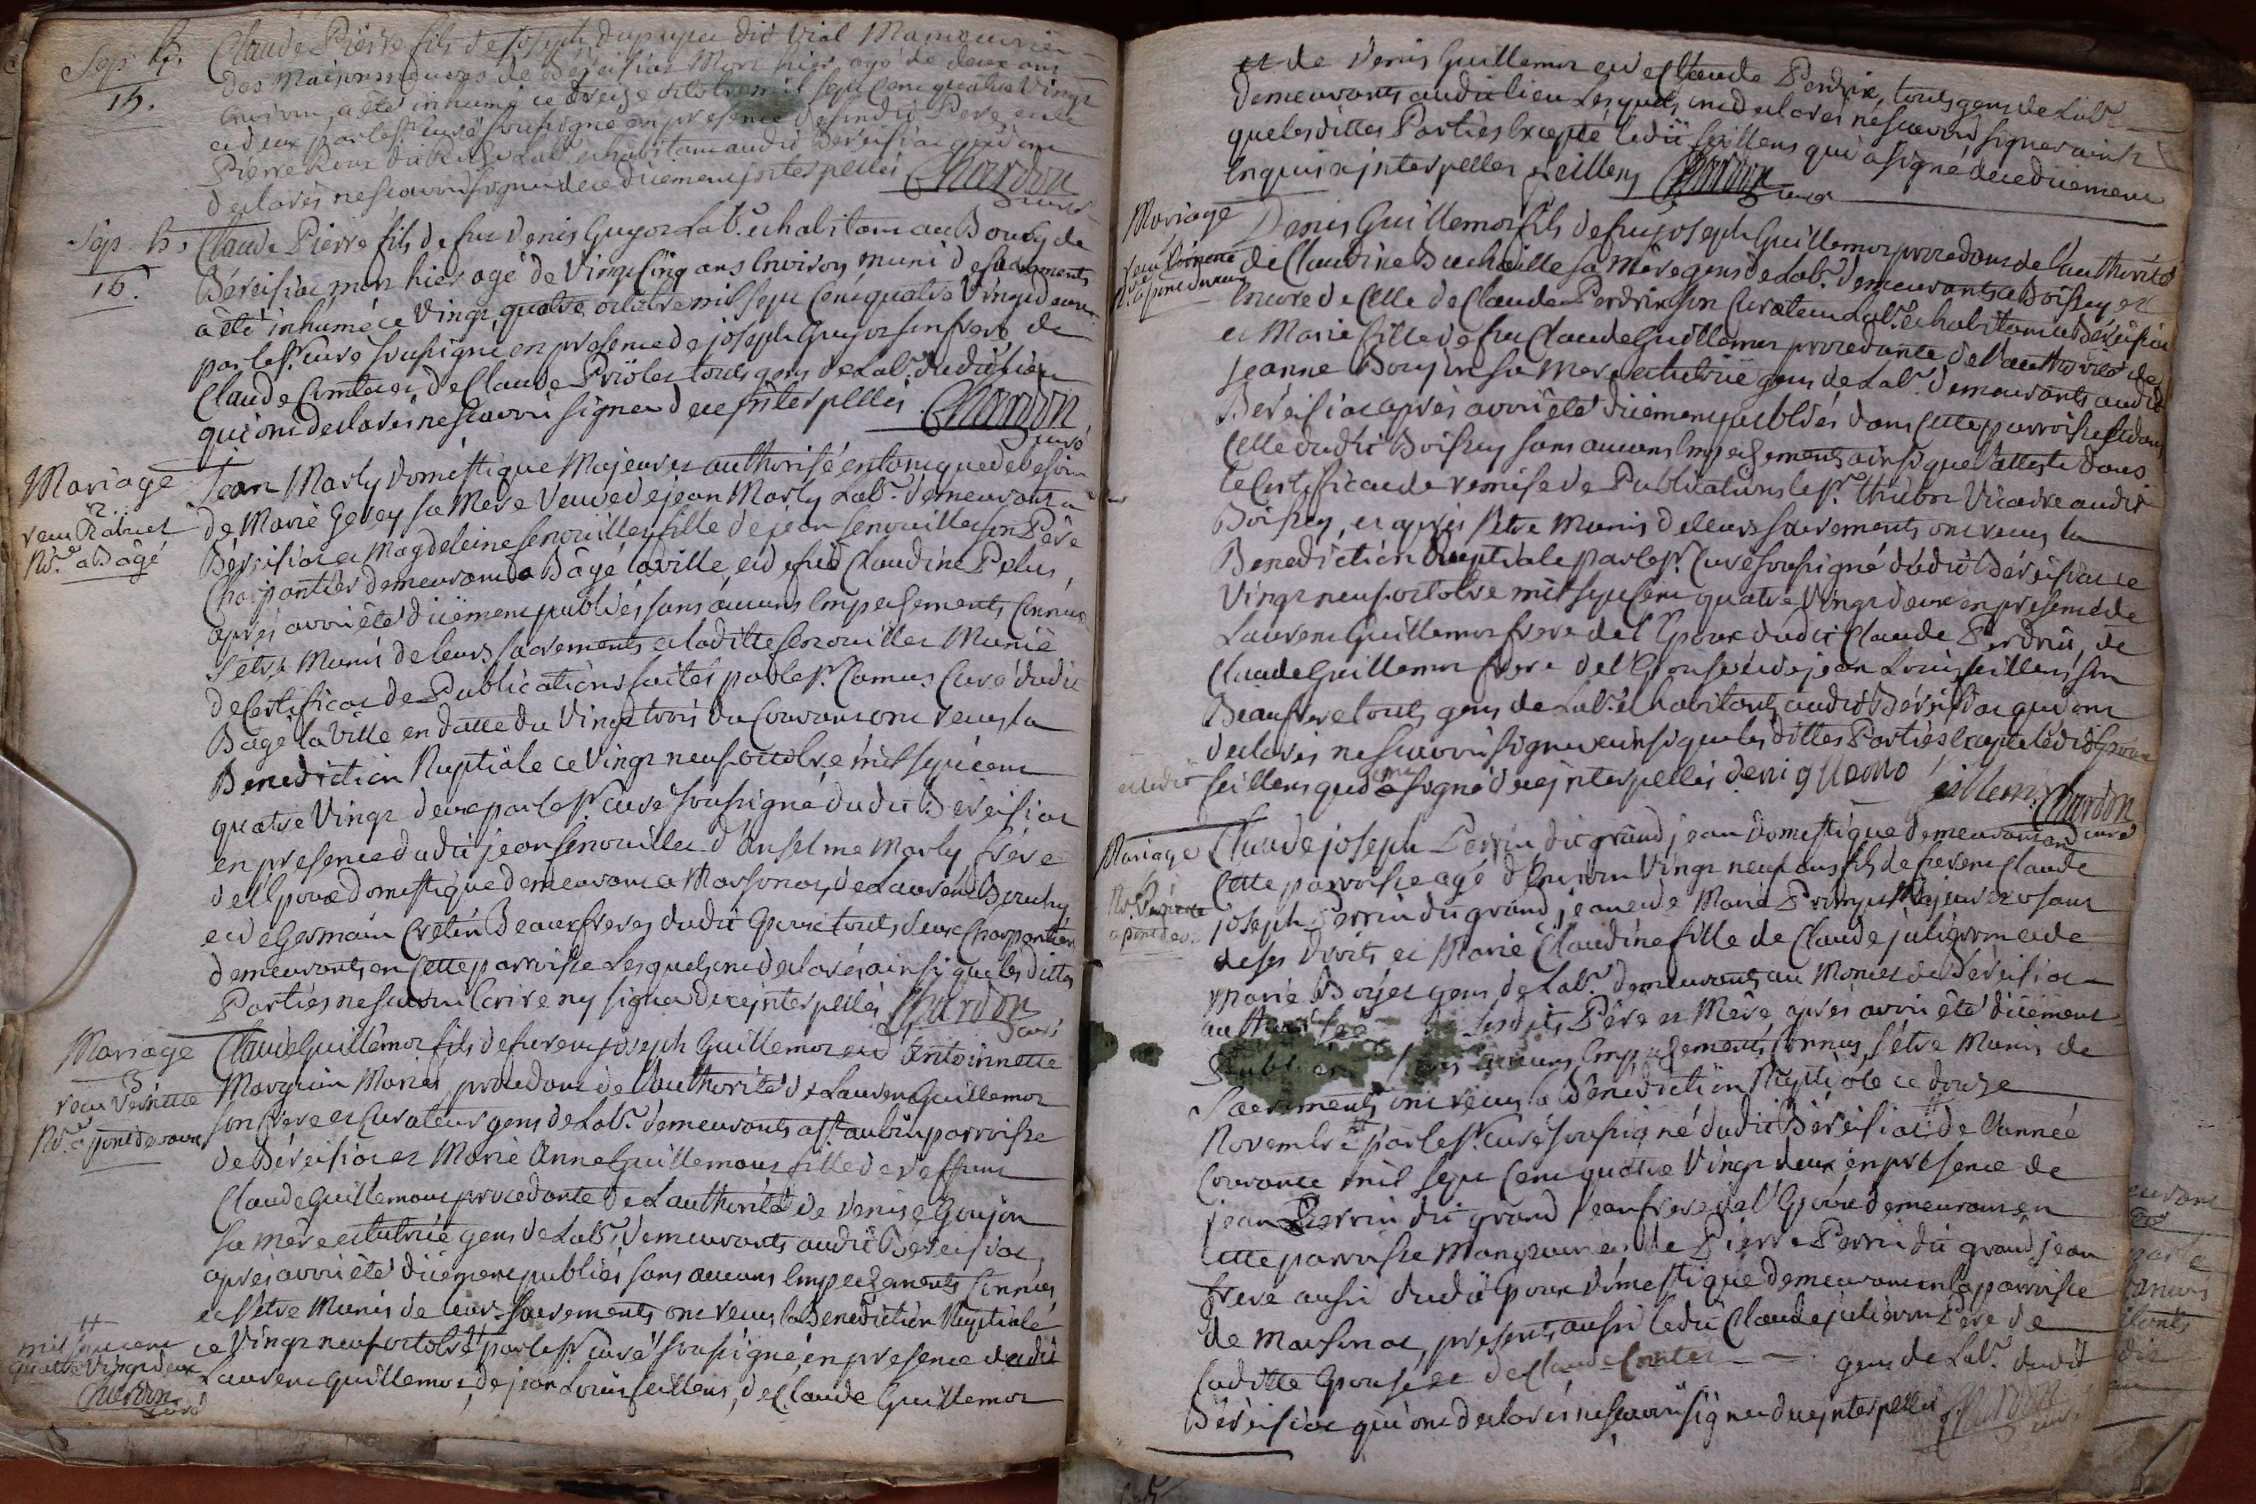 Sep. h.
15.
Claude Pierre fils de Joseph dit Vial Manouvrier
des Maisons neuves de Béreisiat Mort hier agé de deux ans
environ, a été inhumé ce treize octobre mil sept cent quatre vingt
et deux par le sr. Curé soussigné en presence dudit Pere et de
Pierre habitant audit Béreisiat qui ont
declarés ne scavoir signer de ce düement interpellés Chardon
curé
Sep. h.
16.
Claude Pierre fils de feu Denis Guyot Labr. et habitant au Bourg de
Béreisiat mort hier agé de Vingt Cinq ans Environ muni de sacrements
a été inhumé ce Vingt quatre octobre mil sept Cent quatre Vingt deux
par le sr. Curé soussigné en presence de joseph Guyot son frere, de
Claude Comte et de Claude Priolet touts gens de Labr. dudit lieu
qui ont declarés ne scavoir signer de ce interpellés Chardon
curé
Mariage
2.
reçu
Nre. a Bagé
Jean Marly domestique Majeur et authorisé en tant que de besoin
de Marie Gerey sa Mere Veuve de jean Marly Labr. demeurants a
Béreisiat et Magdeleine Senouillet fille de jean Senouillet son Pere
Charpantier demeurant a Bâgé la ville, et de feüe Claudine Pelus,
aprés avoir été düement publiés sans aucuns Empechements Connus
s'être Munis de leurs sacrements et laditte Senouillet Munie
de Certificat de Publications faites par le sr. Camus Curé dudit
Bâgé la Ville en datte du Vingt trois du Courant ont reçus la
Benediction Nuptiale ce Vingt neuf octobre mil sept cent
quatre Vingt deux par le sr. Curé soussigné dudit Béreisiat
en presence dudit jean Senouillet d'Anselme Marly frère
de l'Epoux domestique demeurant a Marsonat, de Laurent Bouchy
et de Germain Cretin Beaux freres dudit Epoux touts deux Charpantiers
demeurants en Cette parroisse Lesquels ont declarés ainsi que les dittes
Parties ne scavoir Ecrire ny signer de ce interpellés Chardon
curé
Mariage
3
reçu
Nre. a pontdevaux
Claude Guillemot fils de feu joseph Guillemot et d'Antoinnette
Marguin Mariés, procedant de l'authorité de Laurent Guillemot
son frere et Curateur gens de Labr. demeurants a st. aubin parroisse
de Béreisiat et Marie Anne Guillemaut fille de deffunt
Claude Guillemaut procedante de L'authorité de Denise Goujon
sa mère et tutrice gens de Labr. demeurants audit Béreisiat,
aprés avoir été düement publiés sans aucuns Empechements Connus
et s'être Munis de leurs sacrements ont reçus la Benediction Nuptiale
ce Vingt neuf octobre # par le sr. Curé soussigné, en presence dudit
Laurent Guillemot, de jean Louis Seillens, de Claude Guillemot
#
mil sept cent
quatre Vingt deux
Chardon
curé
et de Denis Guillemot et de Claude Perdrix, touts gens de Labr.
demeurants audit lieu Lesquels ont declarés ne scavoir signer ainsi
que les dittes Parties Excepté ledit Seillens qui a signé de ce düement
Enquis et interpellés seillens Chardon
curé
Mariage
reçu
Nre. a pontdevaux
Denis Guillemot fils de feu joseph Guillemot procedant de l'authorité
de Claudine Buchaille sa Mère gens de Labr. demeurants a Boissey et
Encore de Celle de Claude Perdrix son Curateur Labr. et habitant a Béreisiat
et Marie fille de feu Claude Guillemot procedante de l'authorité de
Jeanne Bouyon sa Mere et tutrice gens de Labr. demeurants audit
Béreisiat aprés avoir été düement publiés dans cette parroisse et dans
Celle dudit Boissey sans aucuns Empechements ainsi que l'atteste dans
le Certificat de remise de Publications le sr. Vicaire audit
Boissey, et aprés s'être Munis de leurs sacrements ont reçus la
Benediction Nuptiale par le sr. Curé soussigné dudit Béreisiat ce
Vingt neuf octobre mil sept Cent quatre Vingt deux en presence de
Laurent Guillemot frere de l'Epoux dudit Claude Perdrix, de
Claude Guillemot frere de l'Epouse et de jean Louis seillens son
Beaufrere touts gens de Labr. et habitants audit Béreisiat qui ont
declarés ne scavoir signer ainsi que les dittes Parties Excepté ledit Epoux
et ledit seillens qui ont signé de ce interpellés
seillens Chardon
curé
Mariage
Nre.
a pontdev.
Claude joseph Perrin dit grand jean domestique demeurant en
Cette parroisse agé d'Environ Vingt neuf ans fils de Claude
joseph Perrin dit grand jean et de Marie Majeur et usant
de ses Droits et Marie Claudine fille de Claude juliéron et de
Marie Boyer gens de Labr. demeurants au Moncet de Béreisiat
authorisée de sesdits Père et Mère aprés avoir été düement
publiés sans aucuns Empechements Connus, s'être Munis de
Sacrements ont reçus la Benediction Nuptiale ce douze
Novembre # par le sr. Curé soussigné dudit Béreisiat # de l'année
Courante mil sept Cent quatre Vingt deux en présence de
jean Perrin dit grand jean frere de l'Epoux demeurant en
cette parroisse Manouvrier de Pierre Perrin dit grand jean
frere aussi dudit Epoux domestique demeurant en la parroisse
de Marsonat, presents aussi ledit Claude juliéron Père de
laditte Epouse et de Claude Comtet gens de Labr. dudit
Béreisiat qui ont declarés ne scavoir signer de ce interpellés Chardon
curé